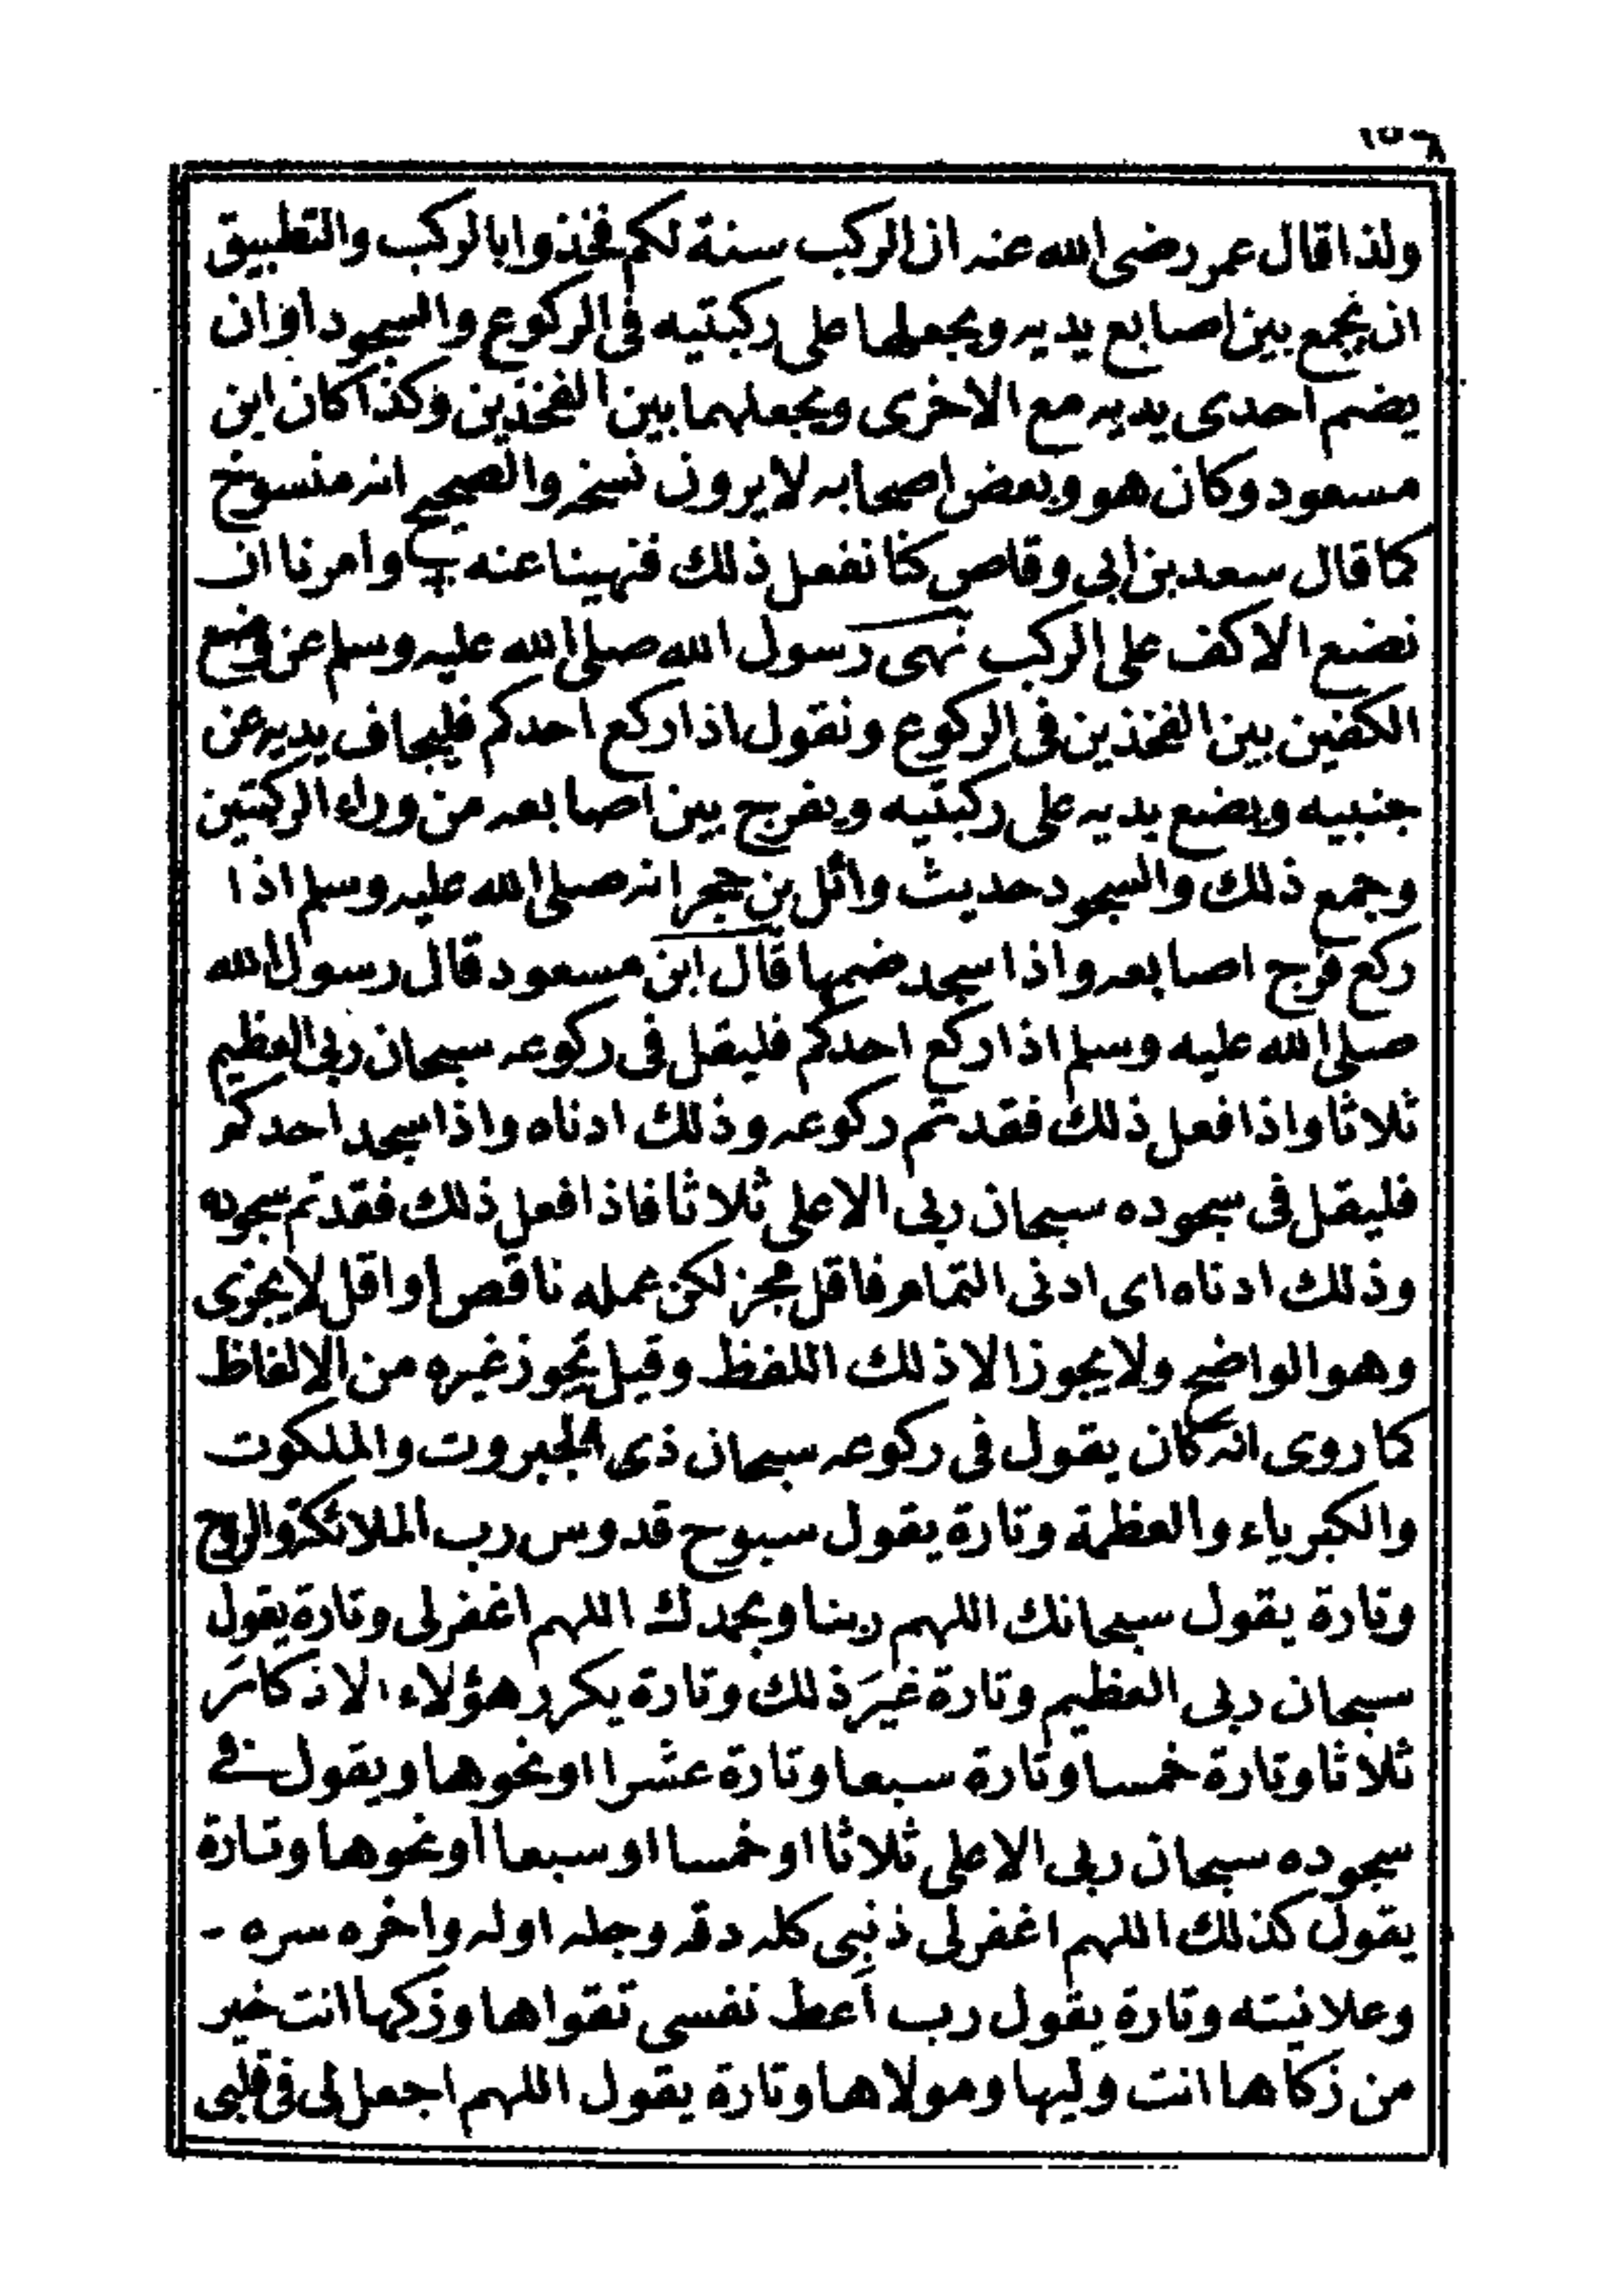 ١٥٦
ولذا قال عمر رضى الله عنه ان الركب سنة لكم فخذوا بالركب والتطبيق
ان يجمع بين اصابع يديه ويجعلها على ركبتيه فى الركوع والسجود او ان
يضم احدى يديه مع الاخرى ويجعلهما بين الفخذين وكذا كان ابن
مسعود وكان هو وبعض اصحابه لا يرون نسخه والصحيح انه منسوخ
كما قال سعد بن ابى وقاص كنا نفعل ذلك فنهينا عنه وامرنا ان
نضع الاكف على الركب نهى رسول الله صلى الله عليه وسلم عن وضع
الكفين بين الفخذين فى الركوع ونقول اذا ركع احدكم فليجاف يديه عن
جنبيه ويضع يديه على ركبتيه ويفرج بين اصابعه من وراء الركبتين
وجمع ذلك والسجود حديث وائل بن حجر انه صلى الله عليه وسلم اذا
ركع فرج اصابعه واذا سجد ضمها قال ابن مسعود قال رسول الله
صلى الله عليه وسلم اذا ركع احدكم فليقل فى ركوعه سبحان ربى العظيم
ثلاثا واذا فعل ذلك فقد تم ركوعه وذلك ادناه واذا سجد احدكم
فليقل فى سجوده سبحان ربى الاعلى ثلاثا فاذا فعل ذلك فقد تم سجوده
وذلك ادناه اى ادنى التمام فاقل مجز لكن عمله ناقص او اقل لا يجزى
وهو الواضح ولا يجوز الا ذلك اللفظ وقيل يجوز غيره من الالفاظ
كما روى انه كان يقول فى ركوعه سبحان ذى الجبروت والملكوت
والكبرياء والعظمة وتارة يقول سبوح قدوس رب الملائكة والروح
وتارة يقول سبحانك اللهم ربنا وبحمدك اللهم اغفر لى وتارة يقول
سبحان ربى العظيم وتارة غيرَ ذلك وتارة يكرر هؤلاء الاذكار
ثلاثا وتارة خمسا وتارة سبعا وتارة عشرا او نحوها ويقول فى
سجوده سبحان ربى الاعلى ثلاثا او خمسا او سبعا او نحوها وتارة
يقول كذلك اللهم اغفر لى ذنبى كله دقه وجله اوله واخره سره -
وعلانيته وتارة يقول رب اَعط نفسى تقواها وزكها انت خير
من زكاها انت وليها ومولاها وتارة يقول اللهم اجعل لى فى قلبى